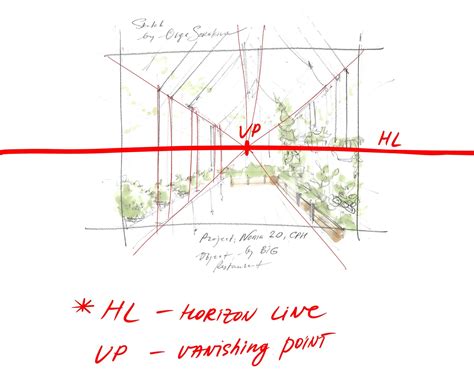 Sketch
by - Olga Sorokina
VP
HL
Project: Noma 2.0, CPH
Object - by BIG
Restaurant
* HL - HORIZON LINE
VP - VANISHING POINT